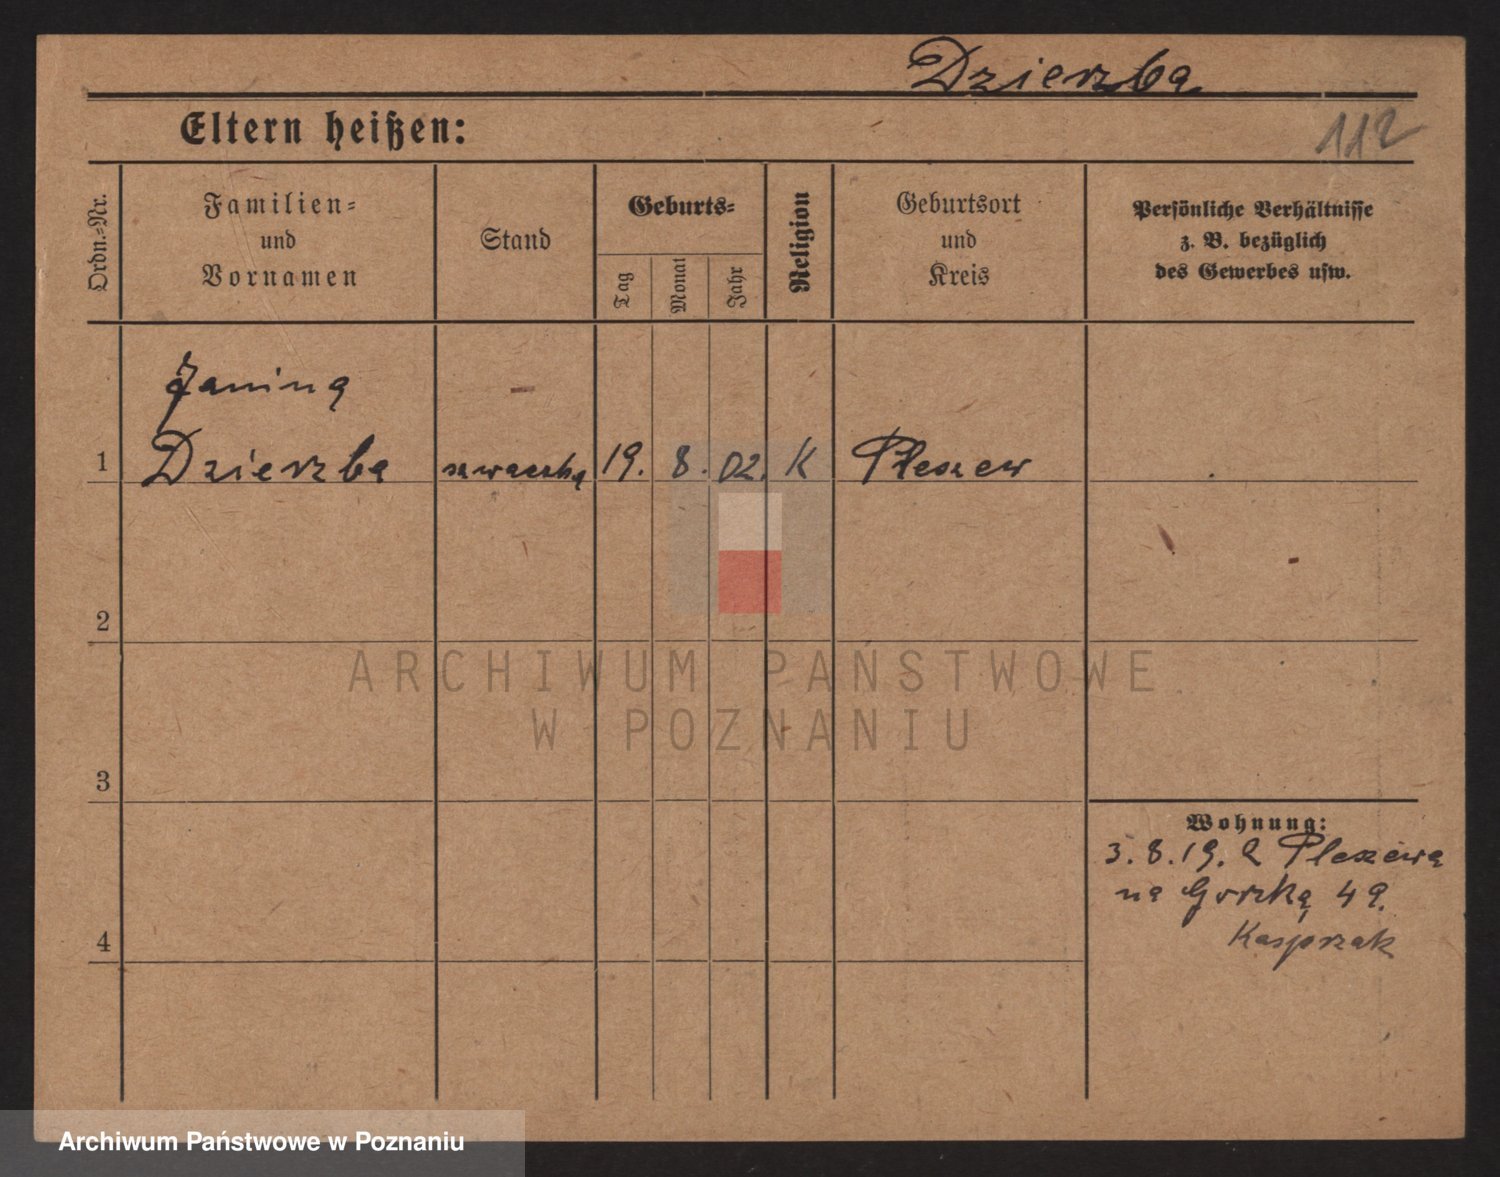 Dzierzba
Eltern heißen:
112
Ordn.-Nr.
Familien-
und
Vornamen
Stand
Geburts-
Tag
Monat
Jahr
Religion
Geburtsort
und
Kreis
Persönliche Verhältnisse
z. B. bezüglich
des Gewerbes usw.
Janina
1 Dzierzba szwaczka 19. 8. 02. K Pleszew
2
3
4
Wohnung:
3. 8. 19. Z Pleszewa
na Gorzką 49.
Kasprzak
ARCHIWUM PAŃSTWOWE
W POZNANIU
Archiwum Państwowe w Poznaniu